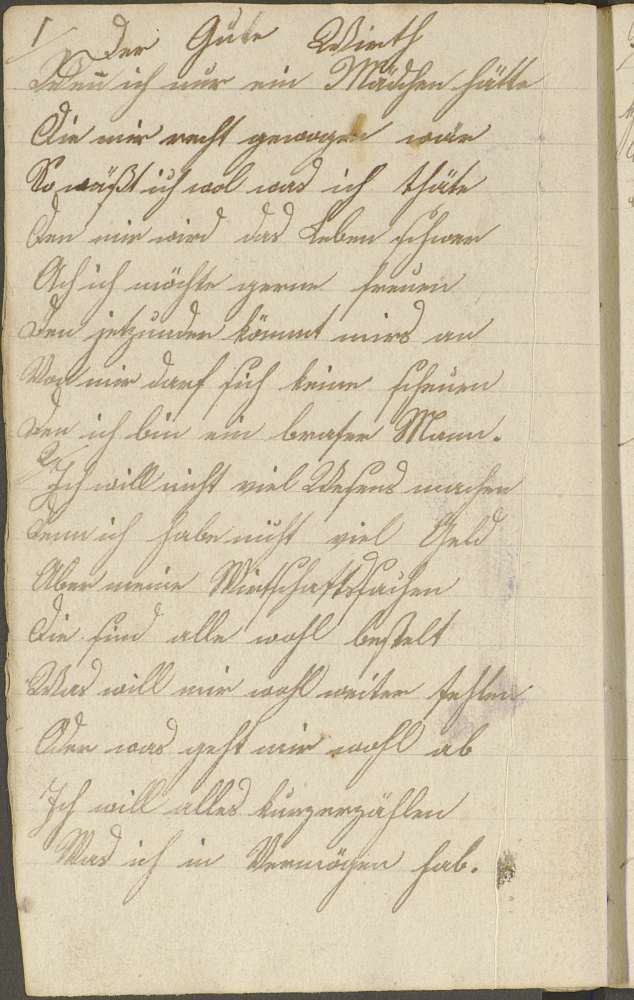 1 Der Gute Wirth
Wen̄ ich nur ein Mädchen hätte
Die mir recht gewogen wär
So wüßt ich wol was ich thäte
Den mir wird das Leben schwer
Ach ich möchte gerne freuen
Den jetzunder kömmt mirs an
Vor mir darf sich keine scheuen
Den ich bin ein brafer Mann.
2 Ich will nicht viel Wesens machen
Denn ich habe nicht viel Geld
Aber meine Wirtschaftssachen
Die sind alle wohl bestelt
Was will mir wohl weiter fehlen
Oder was geht mir wohl ab
Ich will alles kurz erzählen
Was ich in Vermögen hab.